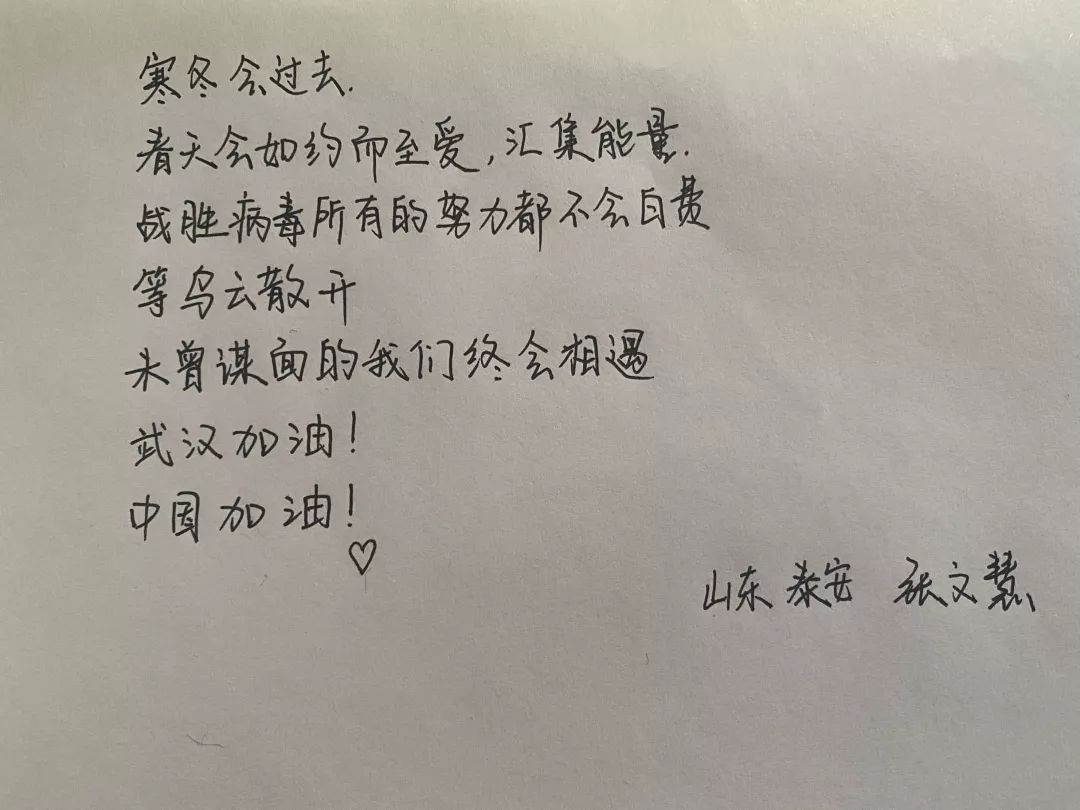 寒冬会过去.
春天会如约而至爱,汇集能量.
战胜病毒所有的努力都不会白费
等乌云散开
未曾谋面的我们终会相遇
武汉加油!
中国加油!
♡
山东泰安 张文慧